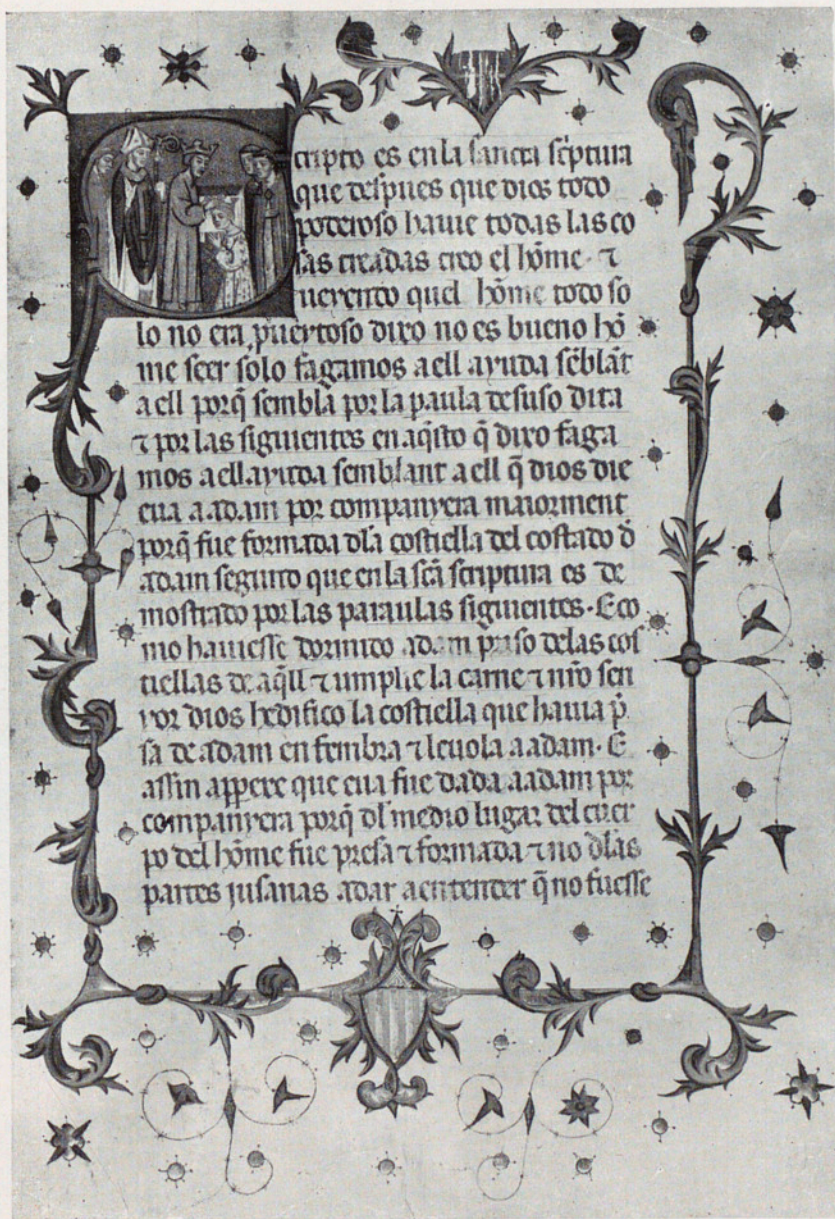 cripto es en la sancta sc̃ptura
que despues que dios todo
poderoso hauie todas las co
sas creadas creo el hõme · ⁊
uuyendo quel hõme todo so
lo no era puertoso dixo no es bueno hõ
me seer solo fagamos a ell ayuda sẽblãt
a ell porq̃ sembla por la paula desuso dita
⁊ por las siguientes en aq̃sto q̃ dixo faga
mos a ell ayuda semblant a ell q̃ dios die
eua a adam por companyera maiorment
porq̃ fue formada dla costiella del costado d̃
adam seguito que en la sc̃a scriptura es de
mostrado por las paraulas siguientes · E co
mo hauiesse dormido adam priso delas cos
tiellas de aq̃ll ⁊ umplie la carne ⁊ nr̃o sen
yor dios hedifico la costiella que hauia p̃
sa de adam en fembra ⁊ leuola a adam · E
assin app̃ere que eua fue dada a adam por
companyera porq̃ dl medio lugar del cuer
po del hõme fue presa ⁊ formada ⁊ no dlas
partes jusanas adar a entender q̃ no fuesse